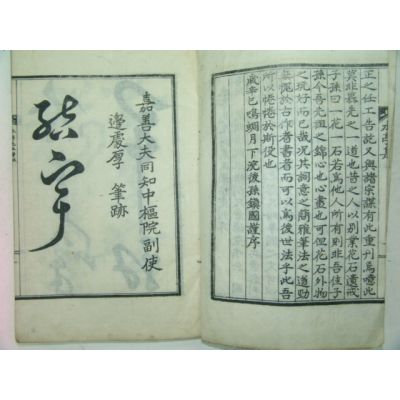 正之仕工告訖又與諸宗謀有此重刊焉噫此
莫非慕先之一道也昔之人以別業花石遺戒
子孫曰一花一石若爲他人所有則非吾佳子
孫今吾先祖之錦心也心畫也可但花石外物
之玩好而已哉況其詞意之簡雅筆法之遒勁
無愧於古作者書者而可以爲後世法乎此吾
所以惓惓於斯役也
歲辛巳鳴蜩月下浣後孫鎭國謹序
嘉善大夫同知中樞院副使
邊處厚 筆跡